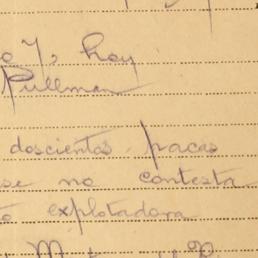 o 7, hoy
Pullman
doscientas pacas
se no contesta
explotadora